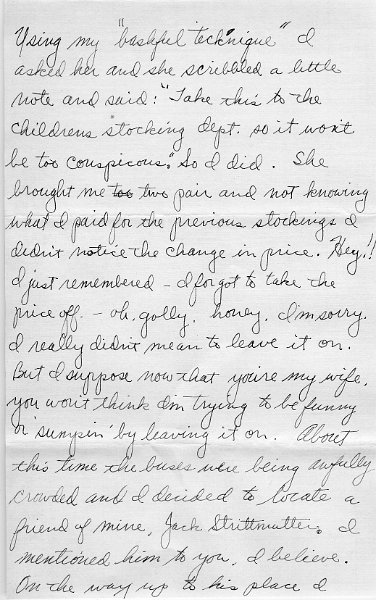 Using my "bashful technique" I
asked her and she scribbled a little
note and said: "Take this to the
childrens stocking dept. so it won't
be too conspicous." So I did. She
brought me too two pair and not knowing
what I paid for the previous stockings I
didn't notice the change in price. Hey!!
I just remembered - I forgot to take the
price off. - oh, golly. honey, I'm sorry.
I really didn't mean to leave it on.
But I suppose now that you're my wife,
you won't think I'm trying to be funny
or 'sumpin' by leaving it on. About
this time the buses were being awfully
crowded and I decided to locate a
friend of mine, Jack Strittmatter. I
mentioned him to you, I believe.
On the way up to his place I